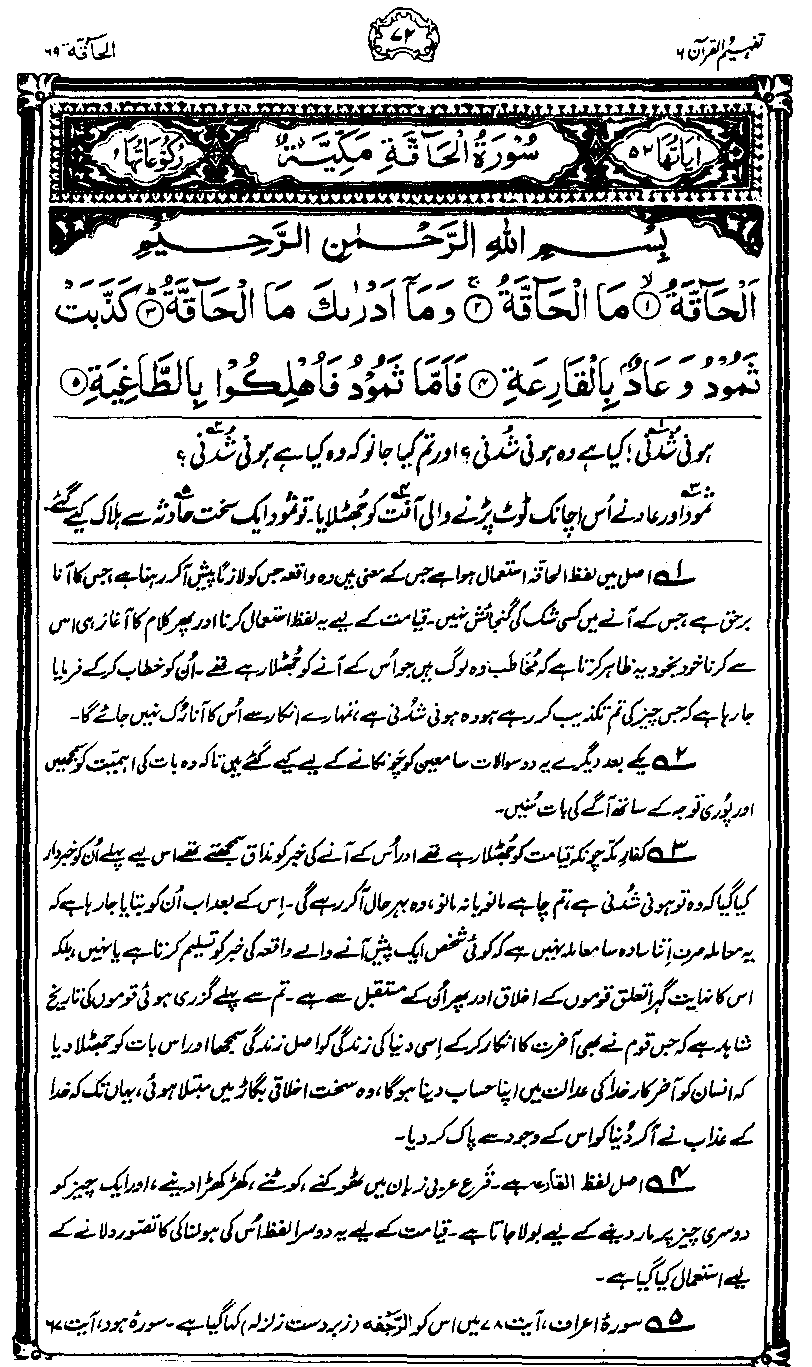 تفہیم القرآن ۶
۷۲
الحاقۃ ۶۹
اٰیَاتُهَا ۵۲
سُوْرَةُ الْحَآقَّةِ مَكِّيَّةٌ
رُكُوْعَاتُهَا ۲
بِسْمِ اللهِ الرَّحْمٰنِ الرَّحِيْمِ
اَلْحَآقَّةُ ۙ۱ مَا الْحَآقَّةُ ۚ۲ وَمَآ اَدْرٰىكَ مَا الْحَآقَّةُ ؕ۳ كَذَّبَتْ
ثَمُوْدُ وَ عَادٌۢ بِالْقَارِعَةِ ۴ فَاَمَّا ثَمُوْدُ فَاُهْلِكُوْا بِالطَّاغِيَةِ ۵
ہونی شُدنی۱! کیا ہے وہ ہونی شُدنی؟ اور تم کیا جانو کہ وہ کیا ہے ہونی شُدنی۲؟
ثمود۳ اور عاد نے اُس اچانک ٹوٹ پڑنے والی آفت۴ کو جُھٹلایا۔ تو ثمود ایک سخت حادثہ۵ سے ہلاک کیے گئے۔
۱ اصل میں لفظ الحاقہ استعمال ہوا ہے جس کے معنی ہیں وہ واقعہ جس کو لازمًا پیش آ کر رہنا ہے، جس کا آنا
برحق ہے، جس کے آنے میں کسی شک کی گنجائش نہیں۔ قیامت کے لیے یہ لفظ استعمال کرنا اور پھر کلام کا آغاز ہی اس
سے کرنا خود بخود یہ ظاہر کرتا ہے کہ مخاطب وہ لوگ ہیں جو اُس کے آنے کو جُھٹلا رہے تھے۔ اُن کو خطاب کر کے فرمایا
جا رہا ہے کہ جس چیز کی تم تکذیب کر رہے ہو وہ ہونی شُدنی ہے، تمہارے انکار سے اُس کا آنا رُک نہیں جائے گا۔
۲ یکے بعد دیگرے یہ دو سوالات سامعین کو چونکانے کے لیے کیے گئے ہیں تاکہ وہ بات کی اہمیت کو سمجھیں
اور پُوری توجہ کے ساتھ آگے کی بات سُنیں۔
۳ کفارِ مکہ چونکہ قیامت کو جُھٹلا رہے تھے اور اُس کے آنے کی خبر کو مذاق سمجھتے تھے اس لیے پہلے اُن کو خبردار
کیا گیا کہ وہ تو ہونی شُدنی ہے، تم چاہے مانو یا نہ مانو، وہ بہرحال آ کر رہے گی۔ اِس کے بعد اب اُن کو بتایا جا رہا ہے کہ
یہ معاملہ صرف اِتنا سادہ سا معاملہ نہیں ہے کہ کوئی شخص ایک پیش آنے والے واقعہ کی خبر کو تسلیم کرتا ہے یا نہیں، بلکہ
اس کا نہایت گہرا تعلق قوموں کے اخلاق اور پھر اُن کے مستقبل سے ہے۔ تم سے پہلے گزری ہوئی قوموں کی تاریخ
شاہد ہے کہ جس قوم نے بھی آخرت کا انکار کر کے اِسی دنیا کی زندگی کو اصل زندگی سمجھا اور اس بات کو جھٹلا دیا
کہ انسان کو آخر کار خدا کی عدالت میں اپنا حساب دینا ہوگا، وہ سخت اخلاقی بگاڑ میں مبتلا ہوئی، یہاں تک کہ خدا
کے عذاب نے آ کر دُنیا کو اس کے وجود سے پاک کر دیا۔
۴ اصل لفظ القارعہ ہے۔ قَرع عربی زبان میں ٹھونکنے، کوٹنے، کھڑکھڑا دینے، اور ایک چیز کو
دوسری چیز پر مار دینے کے لیے بولا جاتا ہے۔ قیامت کے لیے یہ دوسرا لفظ اُس کی ہولناکی کا تصوّر دلانے کے
لیے استعمال کیا گیا ہے۔
۵ سورۂ اعراف، آیت ۷۸ میں اس کو الرَّجفہ (زبردست زلزلہ) کہا گیا ہے۔ سورۂ ہود، آیت ۶۷